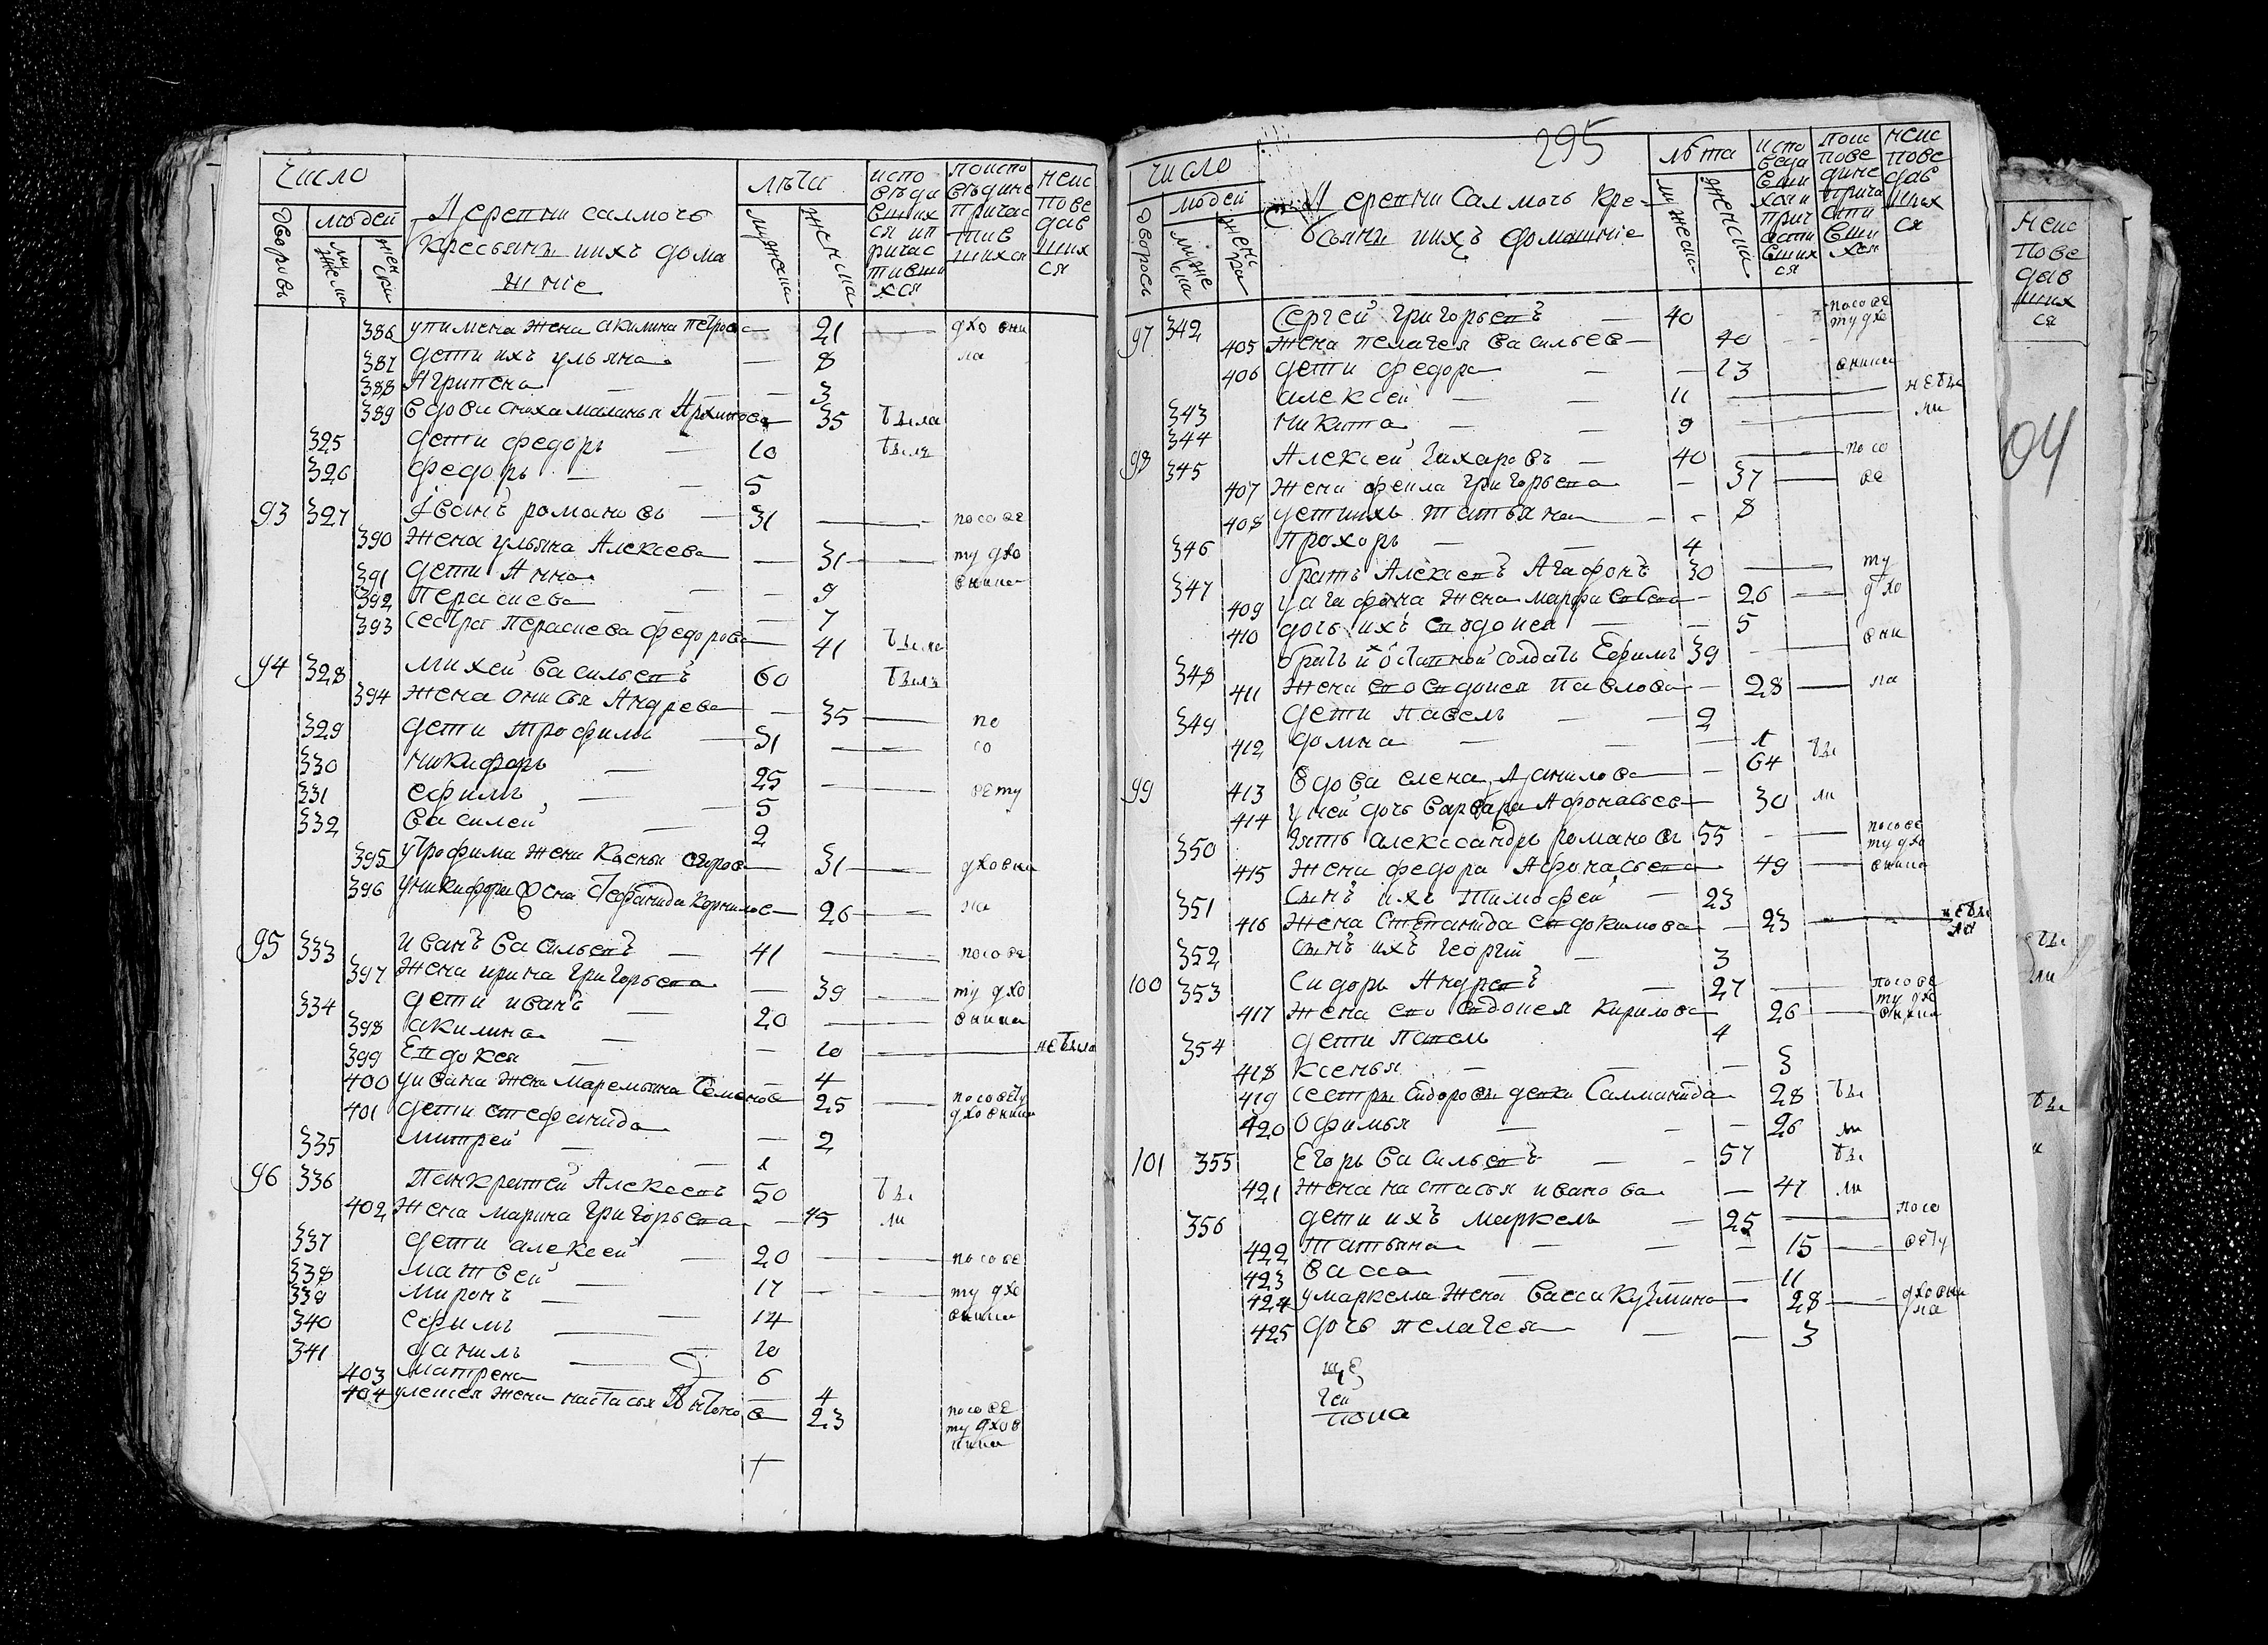 число
людей
дворовъ
мужеска
женска
Деревни салмочъ
кресьянъ ихъ дома
шніе
лѣта
мужеска
женска
испо
вѣди
вших
ся ип
ричас
тивши
хся
поиспо
вѣдине
причас
тив
шихся
неис
пове
дав
ших
ся
386 упимена жена акилина петрова — 21 — дхо вни
387 дети ихъ ульяна — 8 ла
388 Агрипена — 3
389 вдова сноха маланья Архипова — 35 была
325 дети федоръ — 10 былъ
326 федоръ — 5
93 327 Iванъ романовъ — 31 — посове
390 жена ульяна Алексева — 31 — ту дхо
391 дети Анна — 9 вника
392 Перасиева — 7
393 сестра Перасиева федорова — 41 была
94 328 михей васильевъ 60 былъ
394 жена онисья Андрева — 35 — по
329 дети трофимъ — 31 — со
330 никифоръ — 25
331 ефимъ — 5 — вету
332 василей — 2
395 утрофима жена Ксенья егорова — 31 — дховна
396 уникифора жена Стефанида корнилов — 26 — ла
95 333 иванъ васильевъ — 41 — посове
397 жена ирина григорьева — 39 — ту дхо
334 дети иванъ — 20 — вника
398 акилина — 10 — небыла
399 Евдокея — 4
400 уивана жена маремьяна Семенов — 25 — посовету
401 дети стефанида — 2 дховника
335 митрей — 1
96 336 Панкратей Алексевъ 50 бы
402 жена марина григорьева — 45 ли
337 дети алексей — 20 — посове
338 матвей — 17 — ту дхо
339 миронъ — 14 вника
340 ефимъ — 10
341 данилъ — 6
403 матрена — 4
404 улексея жена настасья Антонов — 23 посове
ту дхов
ника
295
число
людей
дворовъ
мужеска
женска
Деревни Салмочъ кре-
сьянъ ихъ домашніе
лѣта
мужеска
женска
испо
веда
вши
хся и
прич
асти
вших
ся
поис
пове
дине
прича
сти
вши
хся
неис
пове
дав
ших
ся
97 342 Сергей григорьевъ — 40 посове
ту дхо
405 жена пелагея васильев — 40
406 дети федора — 13 вника
343 алексей — 11 — небы
344 никита — 9 — ли
98 345 Алексей Захаровъ — 40 — посо
407 жена фекла григорьева — 37 — ве
408 дети ихъ татьяна — 8
346 Прохоръ — 4
347 братъ Алексевъ Агафонъ 30 — ту
409 уагафона жена марфа — 26 — дхо
410 дочь ихъ евдокея — 5
348 братъ солдатъ Ефимъ 39 — вни
411 жена ево евдокея павлова — 28 — ла
349 дети павелъ — 2
412 домна — 1 бы
99 413 вдова елена Данилова — 64
414 уней дочь варвара Афонасьев — 30 ли
350 зять александръ романовъ 55 — посове
ту дхо
415 жена федора Афонасьева 49 — вника
351 сынъ ихъ тимофей — 23
416 жена Степанида евдокимова — 23 — небы
ли
352 сынъ ихъ георгий — 3
100 353 Сидоръ Андревъ — 27 — посове
ту дхо
417 жена ево евдокея кирилова 26 — вника
354 дети павелъ 4
418 ксенья — 3
419 сестры сидоровы девки Салманида 28 бы
420 Офимья — 26 ли
101 355 Егоръ васильевъ — 57 бы
421 жена настасья иванова — 47 ли
356 дети ихъ маркелъ — 25 — посо
422 татьяна — 15 — вету
423 васса — 11
424 умаркела жена васса кузмина — 28 — дховни
ла
425 дочь пелагея — 3
неис
пове
дав
ших
ся
04
бы
ли
бы